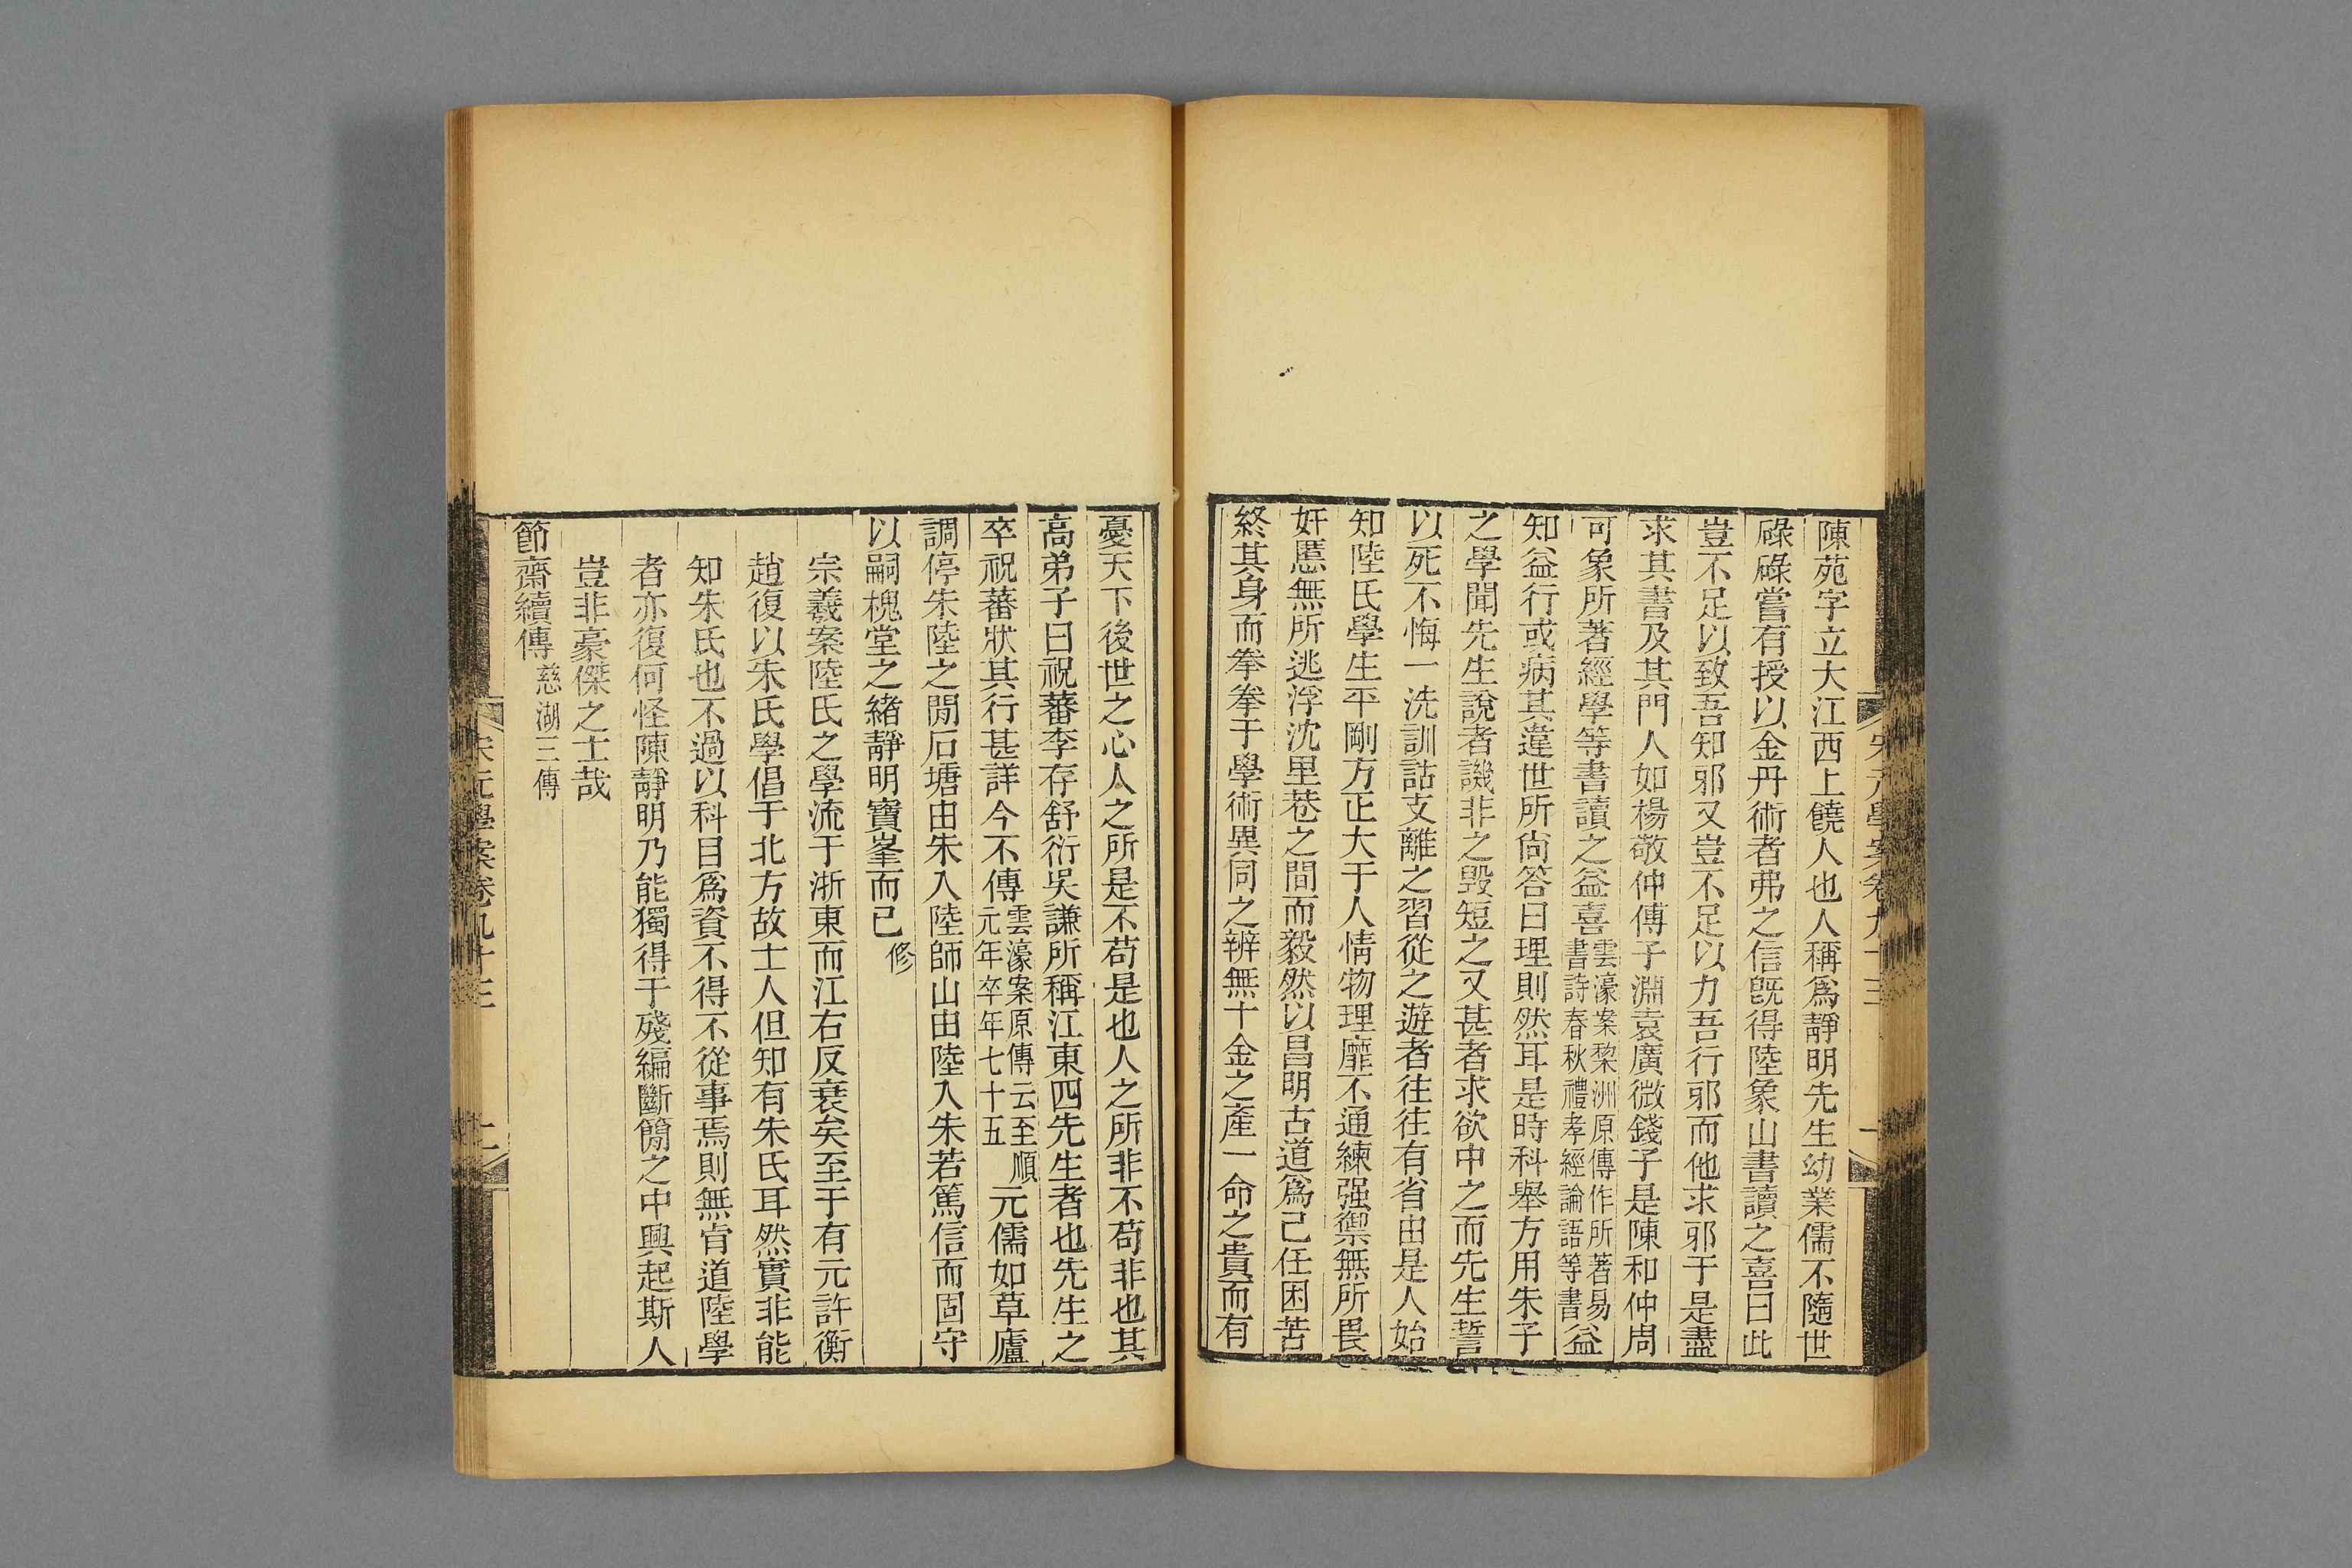 陳苑字立大江西上饒人也人稱爲靜明先生幼業儒不隨世
碌碌嘗有授以金丹術者弗之信旣得陸象山書讀之喜曰此
豈不足以致吾知邪又豈不足以力吾行邪而他求邪于是盡
求其書及其門人如楊敬仲傅子淵袁廣微錢子是陳和仲周
可象所著經學等書讀之益喜雲濠案棃洲原傳作所著易書詩春秋禮孝經論語等書益
知益行或病其違世所尙答曰理則然耳是時科舉方用朱子
之學聞先生說者譏非之毀短之又甚者求欲中之而先生誓
以死不悔一洗訓詁支離之習從之遊者往往有省由是人始
知陸氏學生平剛方正大于人情物理靡不通練强禦無所畏
奸慝無所逃浮沈里巷之間而毅然以昌明古道爲己任困苦
終其身而拳拳于學術異同之辨無十金之產一命之貴而有
憂天下後世之心人之所是不苟是也人之所非不苟非也其
高弟子曰祝蕃李存舒衍吳謙所稱江東四先生者也先生之
卒祝蕃狀其行甚詳今不傳雲濠案原傳云至順元年卒年七十五元儒如草廬
調停朱陸之閒石塘由朱入陸師山由陸入朱若篤信而固守
以嗣槐堂之緒靜明寶峯而已修
宗羲案陸氏之學流于浙東而江右反衰矣至于有元許衡
趙復以朱氏學倡于北方故士人但知有朱氏耳然實非能
知朱氏也不過以科目爲資不得不從事焉則無肯道陸學
者亦復何怪陳靜明乃能獨得于殘編斷簡之中興起斯人
豈非豪傑之士哉
節齋續傳慈湖三傳
宋元學案卷九十三
二